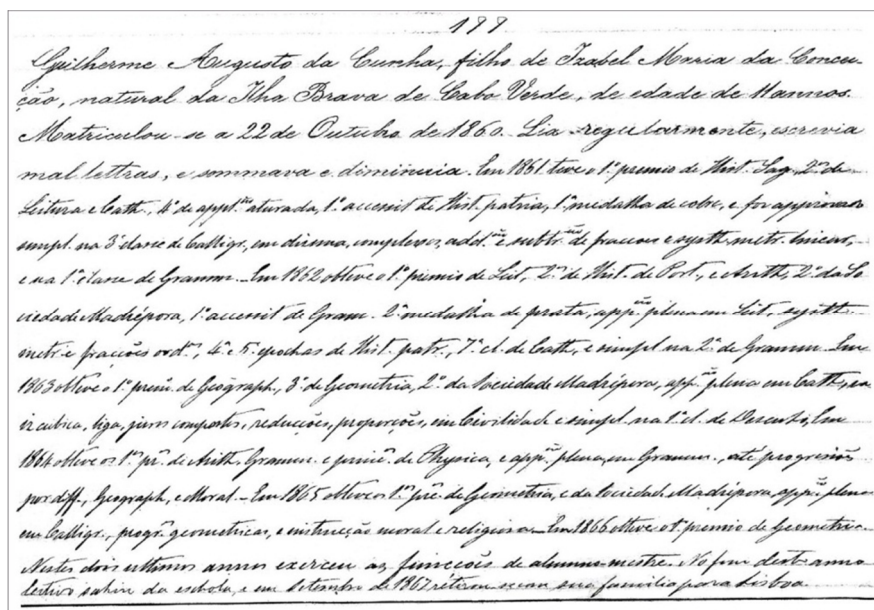 199
Guilherme Augusto da Cunha, filho de Izabel Maria da Concei-
ção, natural da Ilha Brava de Cabo Verde, de edade de 11 annos.
Matriculou-se a 22 de Outubro de 1860. Lia regularmente, escrevia
mal lettras, e sommava e diminuia. Em 1861 teve o 1º premio de Hist. Sag., 2º de
Leitura e Cath., 4º de appl.ção aturada, 1º accessit de Hist. patria, 1ª medalha de cobre, e foi approvado
simpl. na 3ª classe de Calligr., em dizima, complexos, add.ção e subtr.ção de fracções e syst. metr. linear,
e na 1ª classe de Gramm. Em 1862 obteve o 1º premio de Leit., 2º de Hist. de Port., e Arith., 2º da So-
ciedade Madrépora, 1º accessit de Gram. 2ª medalha de prata, app.ção plena em Leit., syst.
metr. e fracções ord., 4ª e 5ª epochas de Hist. patr., 7ª cl. de Cath., e simpl. na 2ª de Gramm. Em
1863 obteve o 1º prem. de Geograph., 3º de Geometria, 2º da Sociedade Madrépora, app.ção plena em Cath., ra-
iz cubica, liga, juros compostos, reducções, proporções, em Civilidade e simpl. na 1ª cl. de Desenho, Em
1864 obteve os 1ºs pr. de Arith., Gramm. e de Physica, e app.ção plena, em Gramm., até progressões
por diff., Geograph., e Moral. Em 1865 obteve os 1ºs pre. de Geometria, e da Sociedade Madrépora, app.ção plena
em Calligr., progr. geometricas, e instrucção moral e religiosa. Em 1866 obteve o 1º premio de Geometria.
Nestes dois ultimos annos exerceu as funcções de alumno-mestre. No fim deste anno
lectivo sahiu da eschola, e em Setembro de 1867 retirou-se com sua familia para Lisboa.